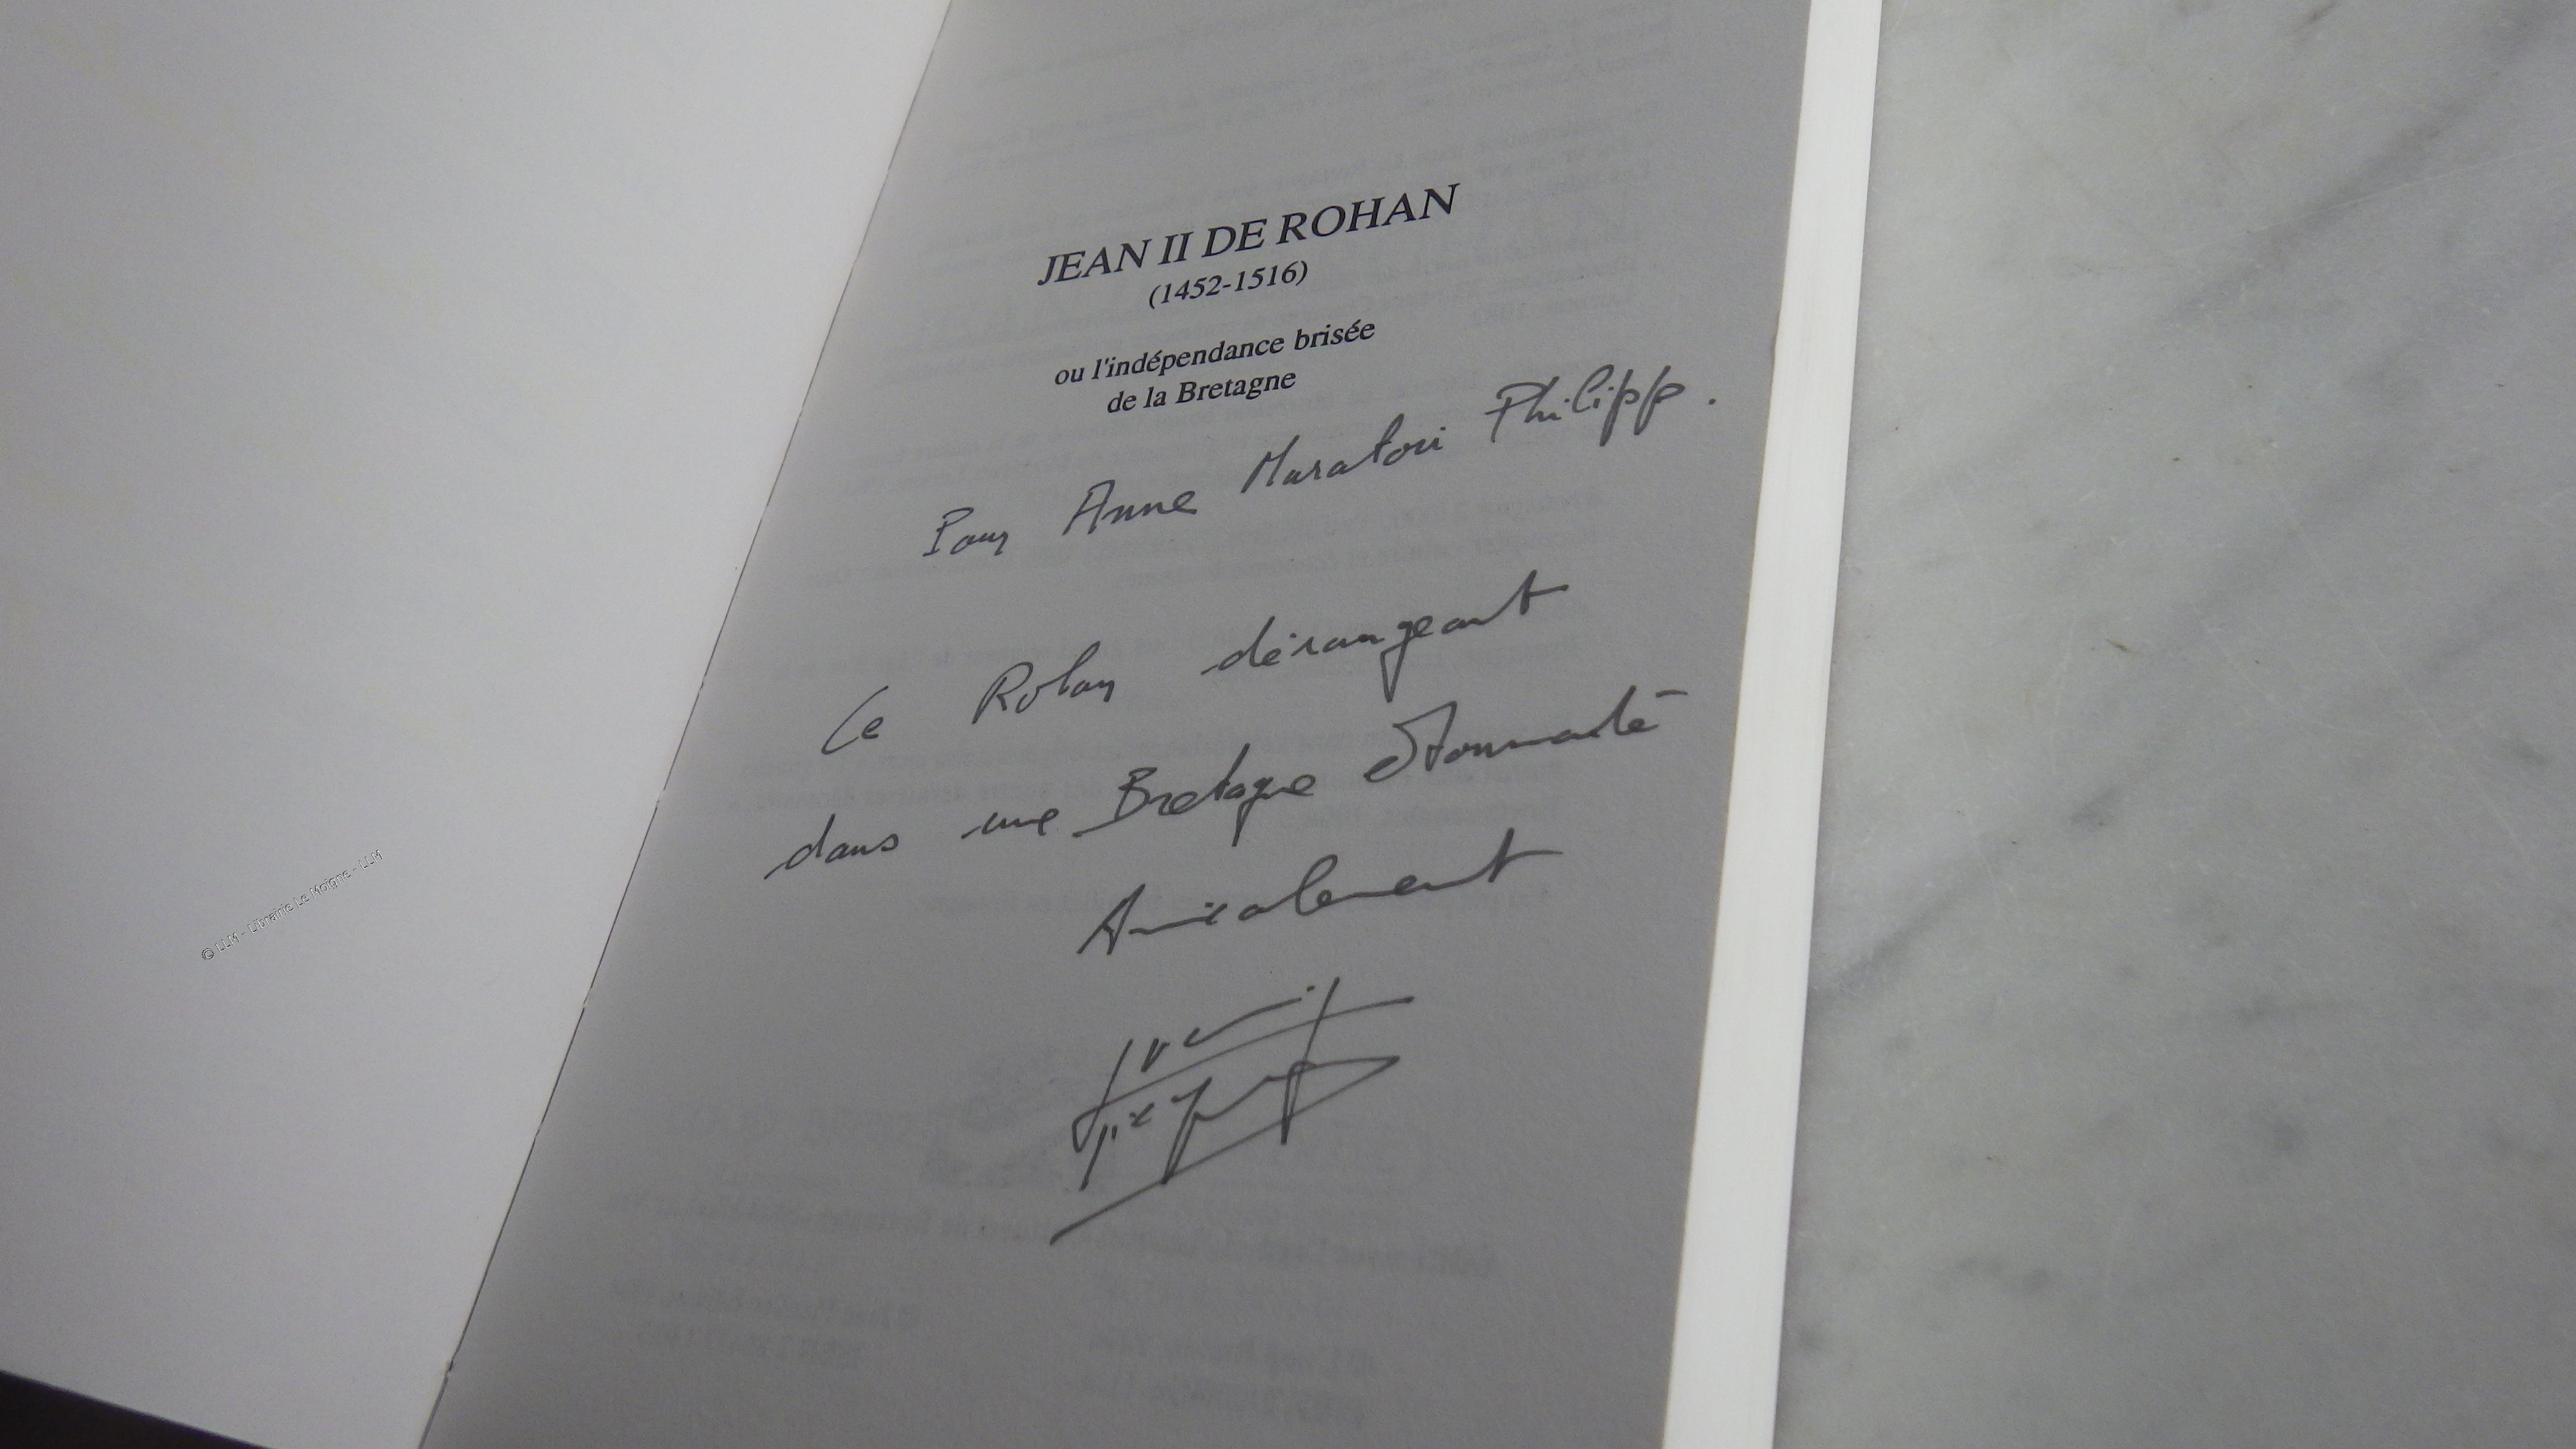 JEAN II DE ROHAN
(1452-1516)
ou l'indépendance brisée
de la Bretagne
Pour Anne Muratori Philipp.
Ce Rohan dérangeant
dans une Bretagne étonnante
Amicalement
© LLM - Librairie Le Moigne - LLM